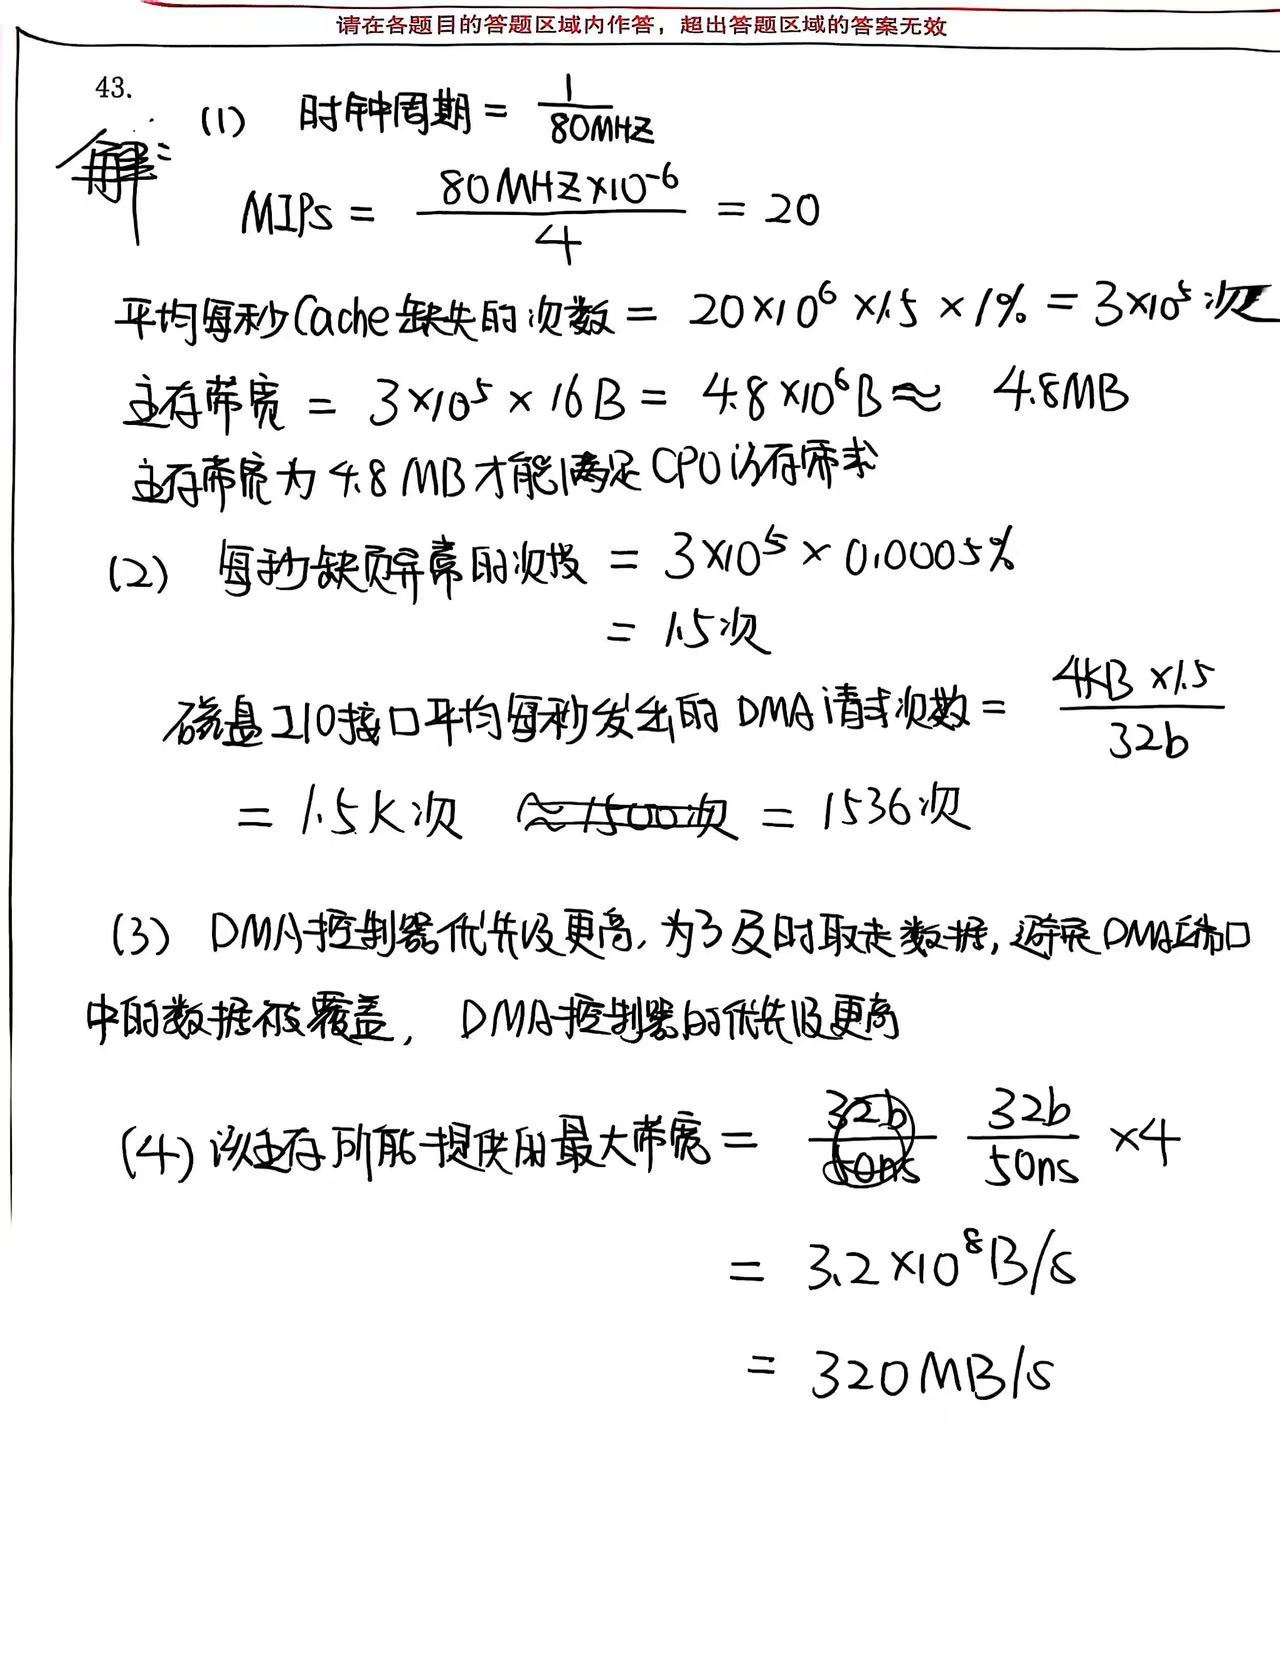 请在各题目的答题区域内作答，超出答题区域的答案无效
43.
解：
(1) 时钟周期 = 1/80MHZ
MIPs = 80MHZ×10⁻⁶/4 = 20
平均每秒Cache缺失的次数 = 20×10⁶×1.5×1% = 3×10⁵次
主存带宽 = 3×10⁵×16B = 4.8×10⁶B ≈ 4.8MB
主存带宽为4.8MB才能满足CPU访存需求
(2) 每秒缺页异常的次数 = 3×10⁵×0.0005%
= 1.5次
磁盘I/O接口平均每秒发出的DMA请求次数 = 4KB×1.5/32b
= 1.5K次 ≈1500次 = 1536次
(3) DMA控制器优先级更高，为了及时取走数据，避免DMA端口
中的数据被覆盖，DMA控制器的优先级更高
(4) 该主存所能提供的最大带宽 = 32b/50ns 32b/50ns ×4
= 3.2×10⁸B/s
= 320MB/s